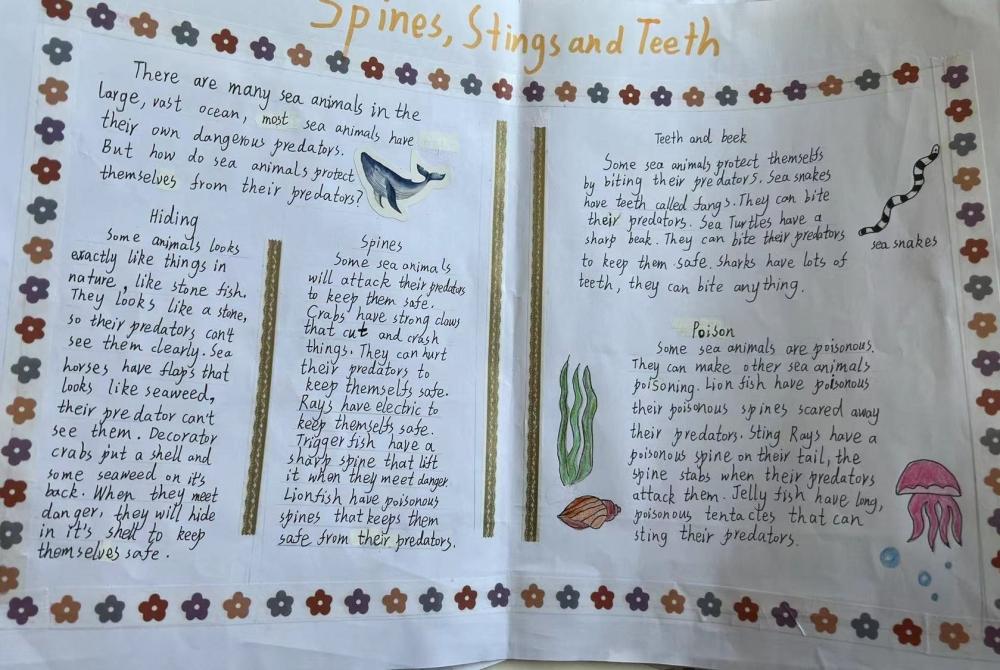 Spines, Stings and Teeth
There are many sea animals in the
large, vast ocean, most sea animals have
their own dangerous predators.
But how do sea animals protect
themselves from their predators?
Hiding
Some animals looks
exactly like things in
nature, like stone fish.
They looks like a stone,
so their predators can't
see them clearly. Sea
horses have flaps that
looks like seaweed,
their predator can't
see them. Decorator
crabs put a shell and
some seaweed on it's
back. When they meet
danger, they will hide
in it's shell to keep
themselves safe.
Spines
Some sea animals
will attack their predators
to keep them safe.
Crabs have strong claws
that cut and crash
things. They can hurt
their predators to
keep themselfs safe.
Rays have electric to
keep themselfs safe.
Trigger fish have a
sharp spine that lift
it when they meet danger
Lionfish have poisonous
spines that keeps them
safe from their predators.
Teeth and beek
Some sea animals protect themselfs
by biting their predators. Sea snakes
have teeth called fangs. They can bite
their predators. Sea Turtles have a
sharp beak. They can bite their predators
to keep them safe. Sharks have lots of
teeth, they can bite anything.
sea snakes
Poison
Some sea animals are poisonous.
They can make other sea animals
poisoning. Lion fish have poisonous
their poisonous spines scared away
their predators. Sting Rays have a
poisonous spine on their tail, the
spine stabs when their predators
attack them. Jelly fish have long,
poisonous tentacles that can
sting their predators.